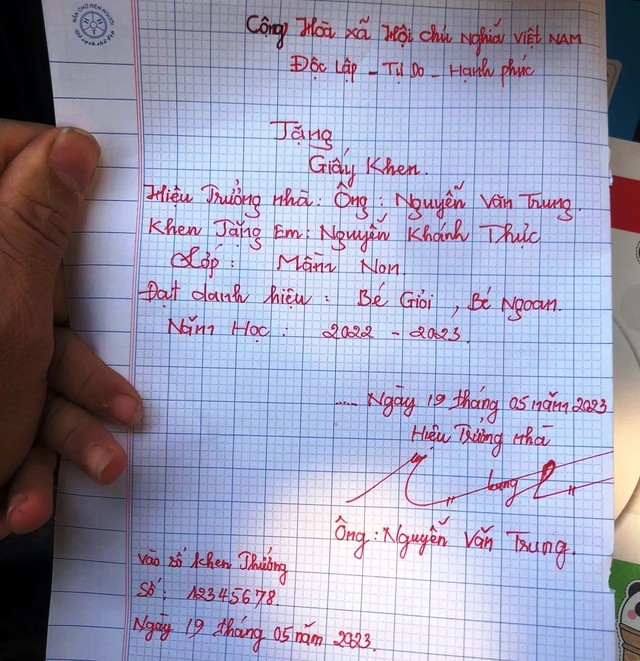 NẮN CHỮ RÈN NGƯỜI
Cộng Hòa xã Hội chủ nghĩa Việt NAM
Độc Lập - Tự Do - Hạnh phúc
Tặng
Giấy Khen.
Hiệu Trưởng nhà: Ông: Nguyễn Văn Trung.
Khen Tặng Em: Nguyễn Khánh Thực
Lớp: Mầm Non.
Đạt danh hiệu: Bé Giỏi, Bé Ngoan.
Năm Học: 2022 - 2023.
..... Ngày 19 tháng 05 năm 2023
Hiệu Trưởng nhà
Ông: Nguyễn Văn Trung.
vào sổ khen Thưởng
Số: 12345678.
Ngày 19 tháng 05 năm 2023.